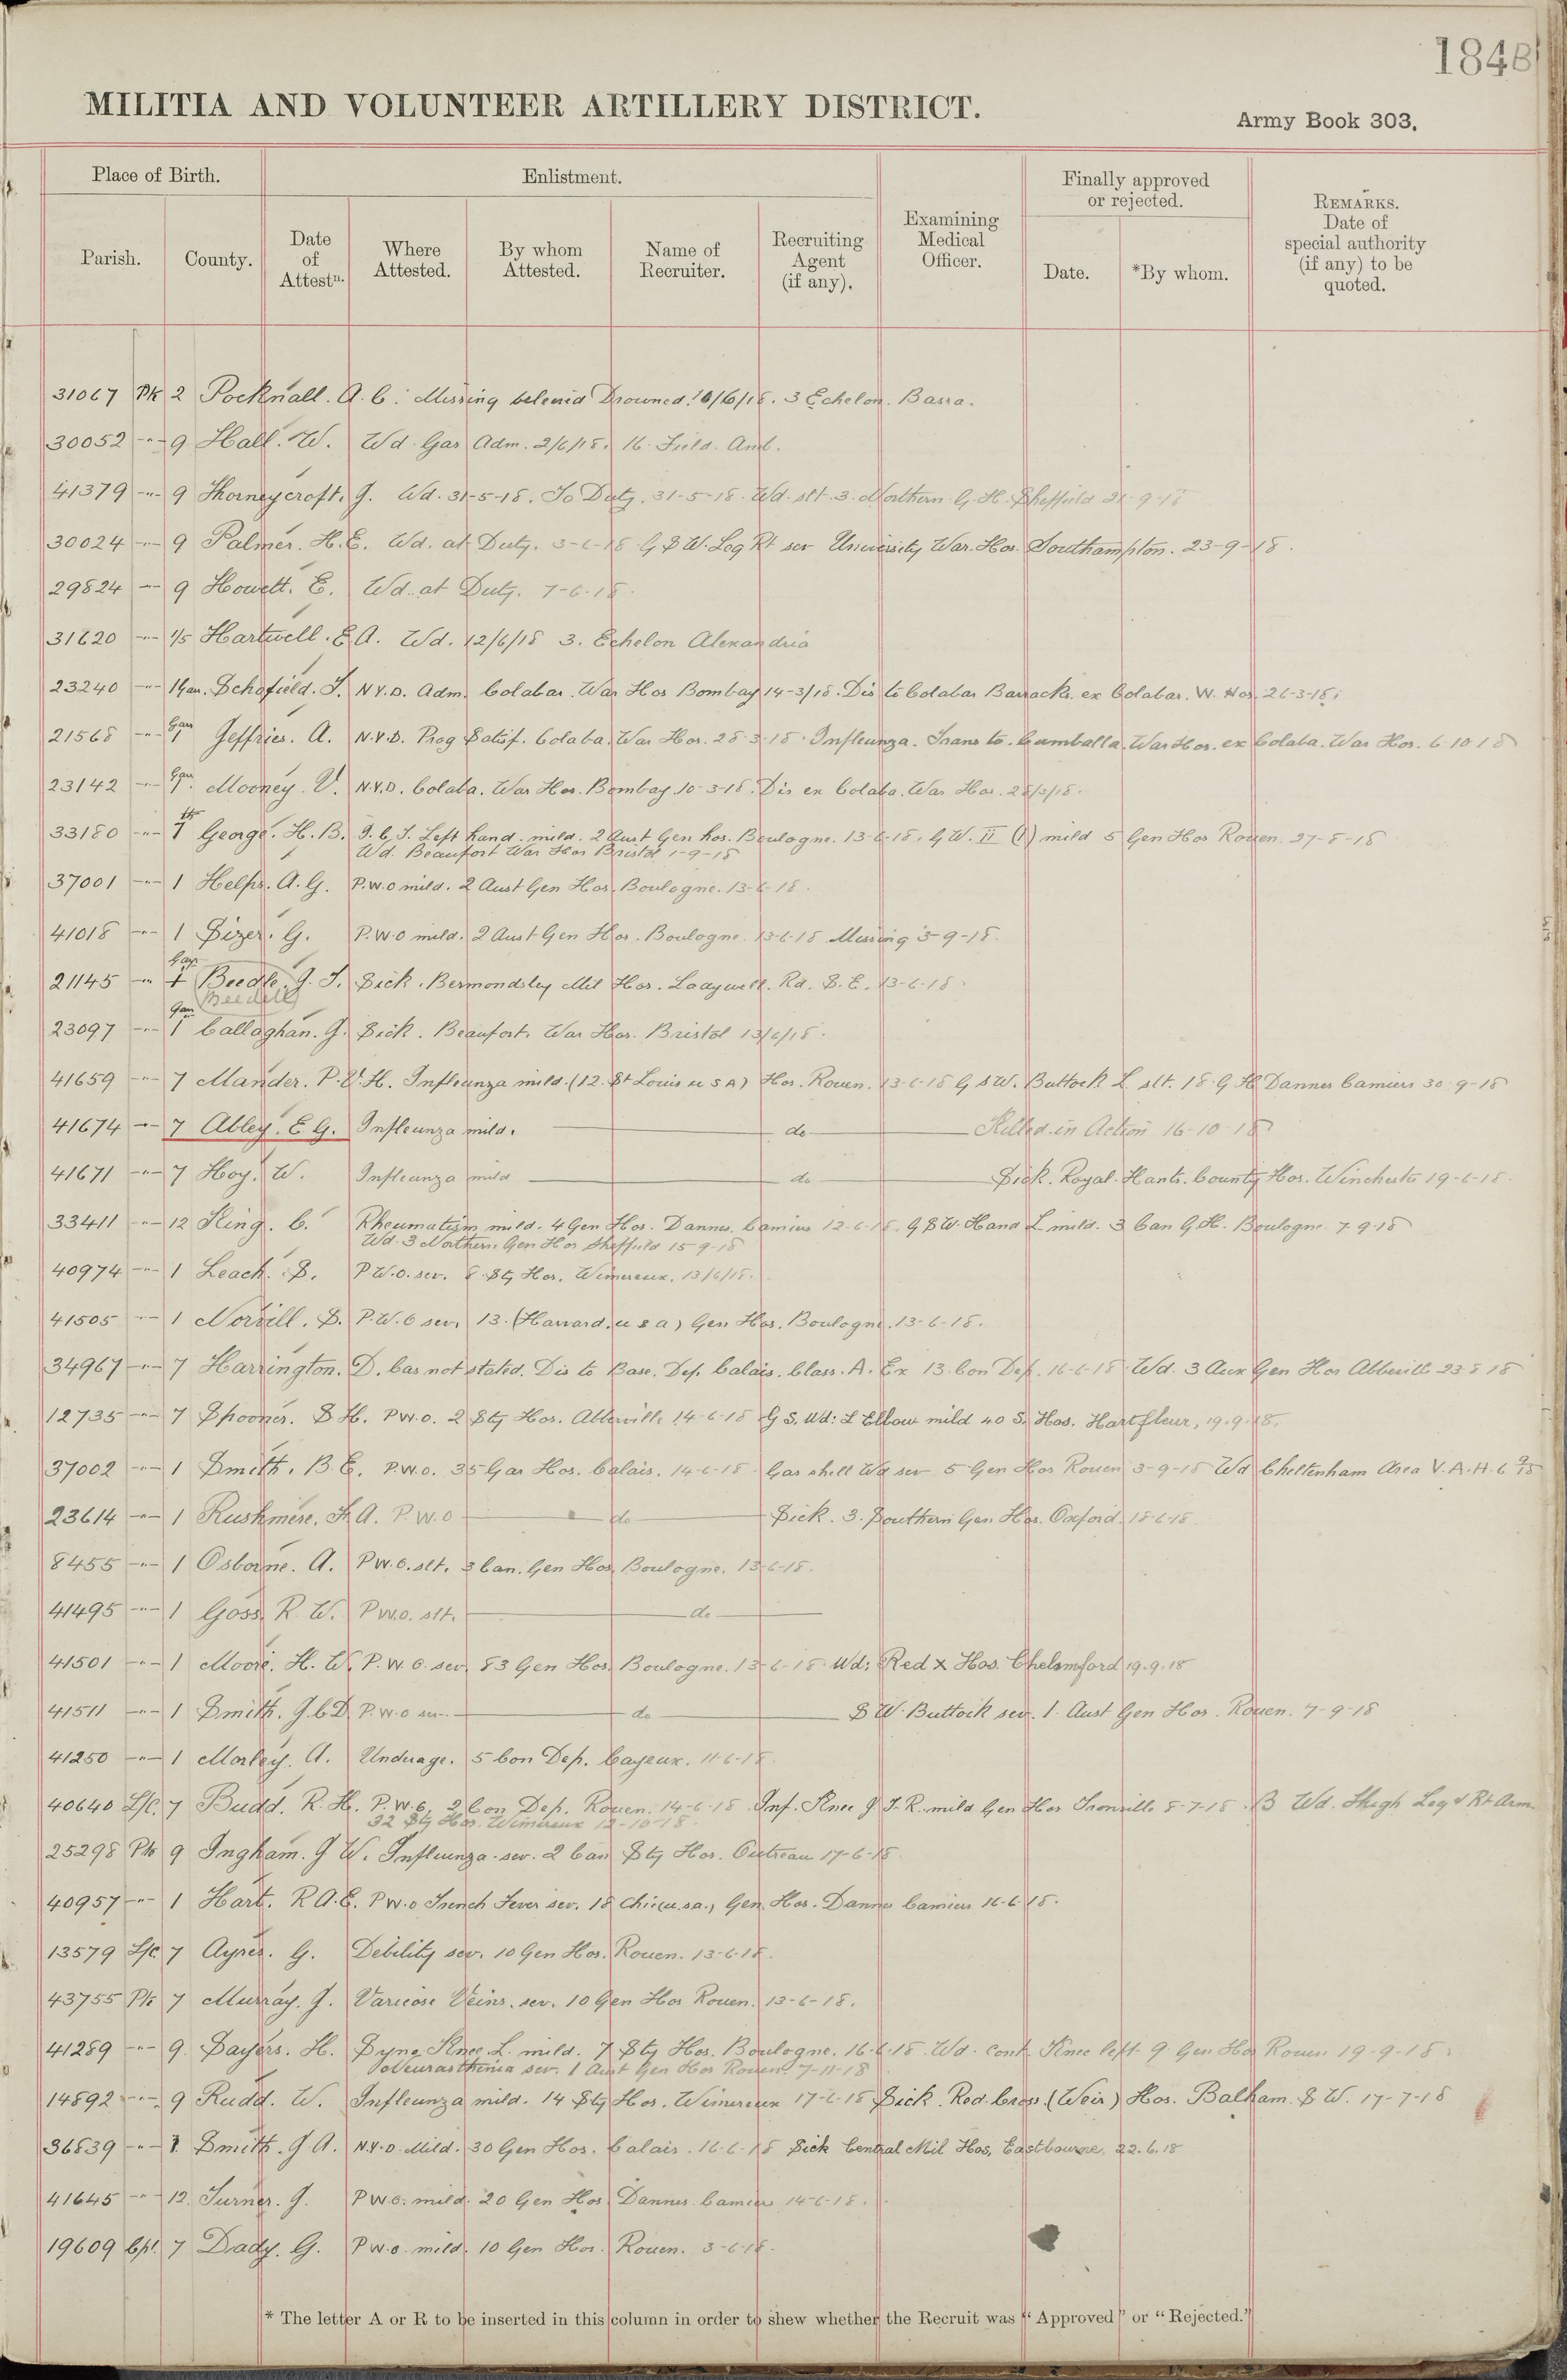 184B
MILITIA AND VOLUNTEER ARTILLERY DISTRICT.
Army Book 303.
Place of Birth. Enlistment. Examining Medical Officer. Finally approved or rejected. REMARKS. Date of special authority (if any) to be quoted.
Parish. County. Date of Attestn. Where Attested. By whom Attested. Name of Recruiter. Recruiting Agent (if any). Date. *By whom.
31067 Pte 2 Pocknall. A. C. Missing believed Drowned. 3 Echelon. Basra.
30052 -"- 9 Hall. W. Wd Gas Adm. 2/6/18. 16 Field. Amb.
41379 -"- 9 Thorneycroft. J. Wd. 31-5-18. To Duty. 31-5-18. Wd. slt. 3. Northern G. H. Sheffield 21-9-18
30024 -"- 9 Palmer. H. E. Wd. at Duty. 3-6-18 G S W. Leg Rt sev University War. Hos. Southampton. 23-9-18.
29824 -"- 9 Howett. E. Wd. at Duty. 7-6-18.
31620 -"- 1/5 Hartwell. E. A. Wd. 12/6/18 3. Echelon Alexandria
23240 -"- 1 Gar. Schofield. J. N.Y.D. Adm. Colabar. War Hos Bombay 14-3/18. Dis to Colabar Barracks. ex Colabar. W. Hos. 26-3-18.
21568 -"- Gar 1 Jeffries. A. N.Y.D. Prog Satisf. Colaba. War Hos. 28-3-18. Influenza. Trans to. Cumballa. War Hos. ex Colaba. War Hos. 6-10-18
23142 -"- Gar 1. Mooney. V. N.Y.D. Colaba. War Hos. Bombay. 10-3-18. Dis ex Colaba. War Hos. 28/3/18.
33180 -"- 7 George. H. B. I. C. T. Left hand. mild. 2 Aust Gen Hos. Boulogne. 13-6-18. G W. II (1) mild 5 Gen Hos Rouen. 27-8-18
Wd. Beaufort War Hos Bristol 1-9-18
37001 -"- 1 Helps. A. G. P.W.O mild. 2 Aust Gen Hos. Boulogne. 13-6-18.
41018 -"- 1 Sizer. G. P.W.O mild. 2 Aust Gen Hos. Boulogne. 13-6-18 Missing 5-9-18.
21145 -"- Gar 1 Beedle. J. T. Sick. Bermondsley Mil Hos. Ladywell. Rd. S. E. 13-6-18.
Beedell
23097 -"- Gar 1 Callaghan. J. Sick. Beaufort. War Hos. Bristol 13/6/18.
41659 -"- 7 Mander. P. V. H. Influenza mild. (12. St Louis U S A) Hos. Rouen. 13-6-18 G S W. Buttock L slt. 18. G H Dannes Camiers 30-9-18
41674 -"- 7 Abley. E. G. Influenza mild. do Killed in Action 16-10-18
41671 -"- 7 Hoy. W. Influenza mild do Sick. Royal. Hants. County Hos. Winchester 19-6-18.
33411 -"- 12 King. C. Rheumatism mild. 4 Gen Hos. Dannes Camiers 12-6-18. G S W. Hand L mild. 3 Can G. H. Boulogne 7-9-18
Wd. 3 Northern Gen Hos Sheffield 15-9-18
40974 -"- 1 Leach. S. P.W.O. sev. 8 Sty Hos. Wimereux. 13/6/18.
41505 -"- 1 Norvill. S. P.W.O sev. 13. (Harvard. U S A) Gen Hos. Boulogne. 13-6-18.
34967 -"- 7 Harrington. D. Cas not stated. Dis to Base. Dep. Calais. Class. A. Ex 13. Con Dep. 16-6-18. Wd. 3 Aus Gen Hos Abbeville 23-8-18
12735 -"- 7 Spooner. S H. P.W.O. 2 Sty Hos. Abbeville 14-6-18 G. S. Wd: L Elbow mild 40 S. Hos. Hartfleur, 19.9.18.
37002 -"- 1 Smith. B. E. P.W.O. 35 Gen Hos. Calais. 14-6-18 Gas shell Wd sev 5 Gen Hos Rouen 3-9-18 Wd Cheltenham Area V. A. H. 6 9/18
23614 -"- 1 Rushmere. F. A. P.W.O do Sick. 3. Southern Gen Hos. Oxford. 18-6-18.
8455 -"- 1 Osborne. A. P.W.O. slt. 3 Can. Gen Hos. Boulogne. 13-6-18.
41495 -"- 1 Goss R. W. P.W.O. slt. do
41501 -"- 1 Moore. H. W. P. W. O. sev. 83 Gen Hos. Boulogne. 13-6-18. Wd: Red X Hos. Chelmsford 19.9.18
41511 -"- 1 Smith. J. C. D. P.W.O sev. do S W. Buttock sev. 1. Aust Gen Hos. Rouen. 7-9-18
41250 -"- 1 Morley. A. Underage. 5 Con Dep. Cayeux. 11-6-18.
40640 L/C. 7 Budd. R. H. P. W. O. 2 Con Dep. Rouen. 14-6-18 Inf. Knee J. T. R. mild Gen Hos Trouville 8-7-18. B Wd. Thigh Leg & Rt Arm.
32 Sty Hos. Wimereux 12-10-18.
25298 Pte 9 Ingham. J W. Influenza. sev. 2 Can Sty Hos. Outreau 17-6-18.
40957 -"- 1 Hart. R. A. E. P.W.O Trench Fever sev. 18 Chic (U.S.A.) Gen. Hos. Dannes Camiers 16-6-18.
13579 L/C 7 Ayres. G. Debility sev. 10 Gen Hos. Rouen. 13-6-18.
43755 Pte 7 Murray. J. Varicose Veins. sev. 10 Gen Hos Rouen. 13-6-18.
41289 -"- 9. Sayers. H. Syno Knee. L. mild. 7 Sty Hos. Boulogne. 16-6-18. Wd. cont Knee left 9 Gen Hos Rouen 19-9-18.
Neurasthenia sev. 1 Aust Gen Hos Rouen. 7-11-18
14892 -"- 9 Rudd. W. Influenza mild. 14 Sty Hos. Wimereux 17-6-18. Sick. Red. Cross. (Weir) Hos. Balham. S W. 17-7-18
36839 -"- 1. Smith. J A. N.Y.D. Mild. 30 Gen Hos. Calais. 16-6-18 Sick Central Mil Hos, Eastbourne. 22.6.18
41645 -"- 12. Turner. J. P.W.O. mild. 20 Gen Hos Dannes Camiers 14-6-18.
19609 Cpl. 7 Dady. G. P.W.O. mild. 10 Gen Hos. Rouen. 3-6-18.
* The letter A or R to be inserted in this column in order to shew whether the Recruit was "Approved" or "Rejected."